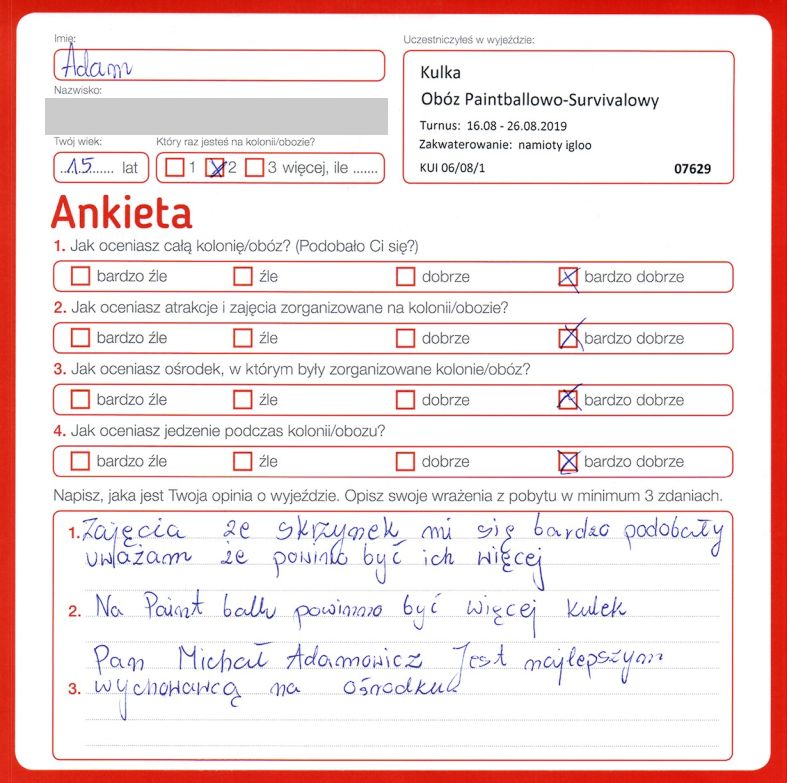 Imię:
Adam
Nazwisko:
Twój wiek:
15 lat
Który raz jesteś na kolonii/obozie?
1 2 3 więcej, ile .......
Uczestniczyłeś w wyjeździe:
Kulka
Obóz Paintballowo-Survivalowy
Turnus: 16.08 - 26.08.2019
Zakwaterowanie: namioty igloo
KUI 06/08/1 07629
Ankieta
1. Jak oceniasz całą kolonię/obóz? (Podobało Ci się?)
bardzo źle źle dobrze bardzo dobrze
2. Jak oceniasz atrakcje i zajęcia zorganizowane na kolonii/obozie?
bardzo źle źle dobrze bardzo dobrze
3. Jak oceniasz ośrodek, w którym były zorganizowane kolonie/obóz?
bardzo źle źle dobrze bardzo dobrze
4. Jak oceniasz jedzenie podczas kolonii/obozu?
bardzo źle źle dobrze bardzo dobrze
Napisz, jaka jest Twoja opinia o wyjeździe. Opisz swoje wrażenia z pobytu w minimum 3 zdaniach.
1. Zajęcia ze skrzynek mi się bardzo podobały
uważam że powinno być ich więcej
2. Na Paint ballu powinno być więcej kulek
Pan Michał Adamowicz Jest najlepszym
3. wychowawcą na ośrodku